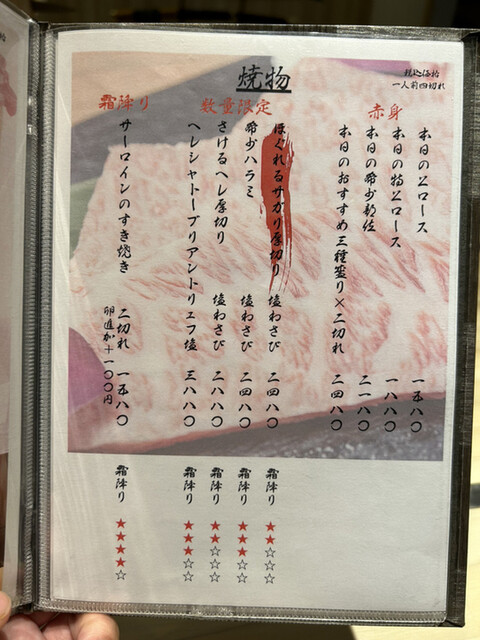 焼物
税込価格
一人前四切れ
赤身
本日の上ロース 一五八〇
本日の特上ロース 一八八〇
本日の希少部位 二一八〇
本日のおすすめ三種盛り×二切れ 二四八〇
数量限定
ほぐれるサガリ厚切り 塩わさび 二四八〇 霜降り ★★☆☆☆
希少ハラミ 塩わさび 二四八〇 霜降り ★★★☆☆
さけるヘレ厚切り 塩わさび 二八八〇 霜降り ★★☆☆☆
ヘレシャトーブリアントリュフ塩 三八八〇 霜降り ★★★☆☆
霜降り
サーロインのすき焼き 二切れ 一五八〇 霜降り ★★★★☆
卵追加+一〇〇円